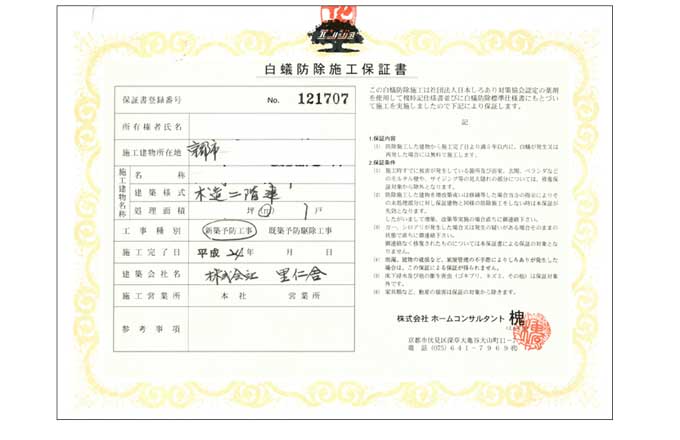 白蟻防除施工保証書
保証書登録番号 No. 121707
所有権者氏名
施工建物所在地 京都市
施工建物名称
名称
建築様式 木造二階建
処理面積 坪 ㎡ 1戸
工事種別 新築予防工事 既築予防駆除工事
施工完了日 平成24年 月 日
建築会社名 株式会社 里仁舎
施工営業所 本社 営業所
参考事項
この白蟻防除施工は社団法人日本しろあり対策協会認定の薬剤
を使用して検特記仕様書並びに白蟻防除標準仕様書にもとづい
て施工を実施しましたので下記により保証します。
記
1.保証内容
(1) 防除施工した建物から施工完了日より満5年以内に、白蟻が発生又は
再発した場合には無料で施工します。
2.保証条件
(1) 施工時すでに被害が発生している箇所及び浴室、玄関、ベランダなど
のモルタル壁や、サイジング等の見え隠れの部分については、被害
保証対象から除外となります。
(2) 防除施工した建物を増改築或いは移築等した場合
その未処理部分に対し保証建物と同様の防除施工をしない時は本保証が
失効となります。
したがいまして増築、改築等実施の場合直ちに御連絡下さい。
(3) 万一、シロアリが発生した場合又は発生の疑いがある場合そのままの
状態で直ちに御連絡下さい。
御連絡なく移築されたものについては本保証書による保証の対象と
なりません。
(4) 雨漏、建物の破損など、家屋管理の不手際によりしろありが発生した
場合は、この保証による保証が得られません。
(5) 床下浸水及び他の衛生害虫(ゴキブリ、ネズミ、その他)は保証対象
外です。
(6) 家具類など、動産の損害は保証の対象から除きます。
株式会社 ホームコンサルタント 槐
京都市伏見区深草大亀谷大山町11-
電話 (075) 641-7969㈹